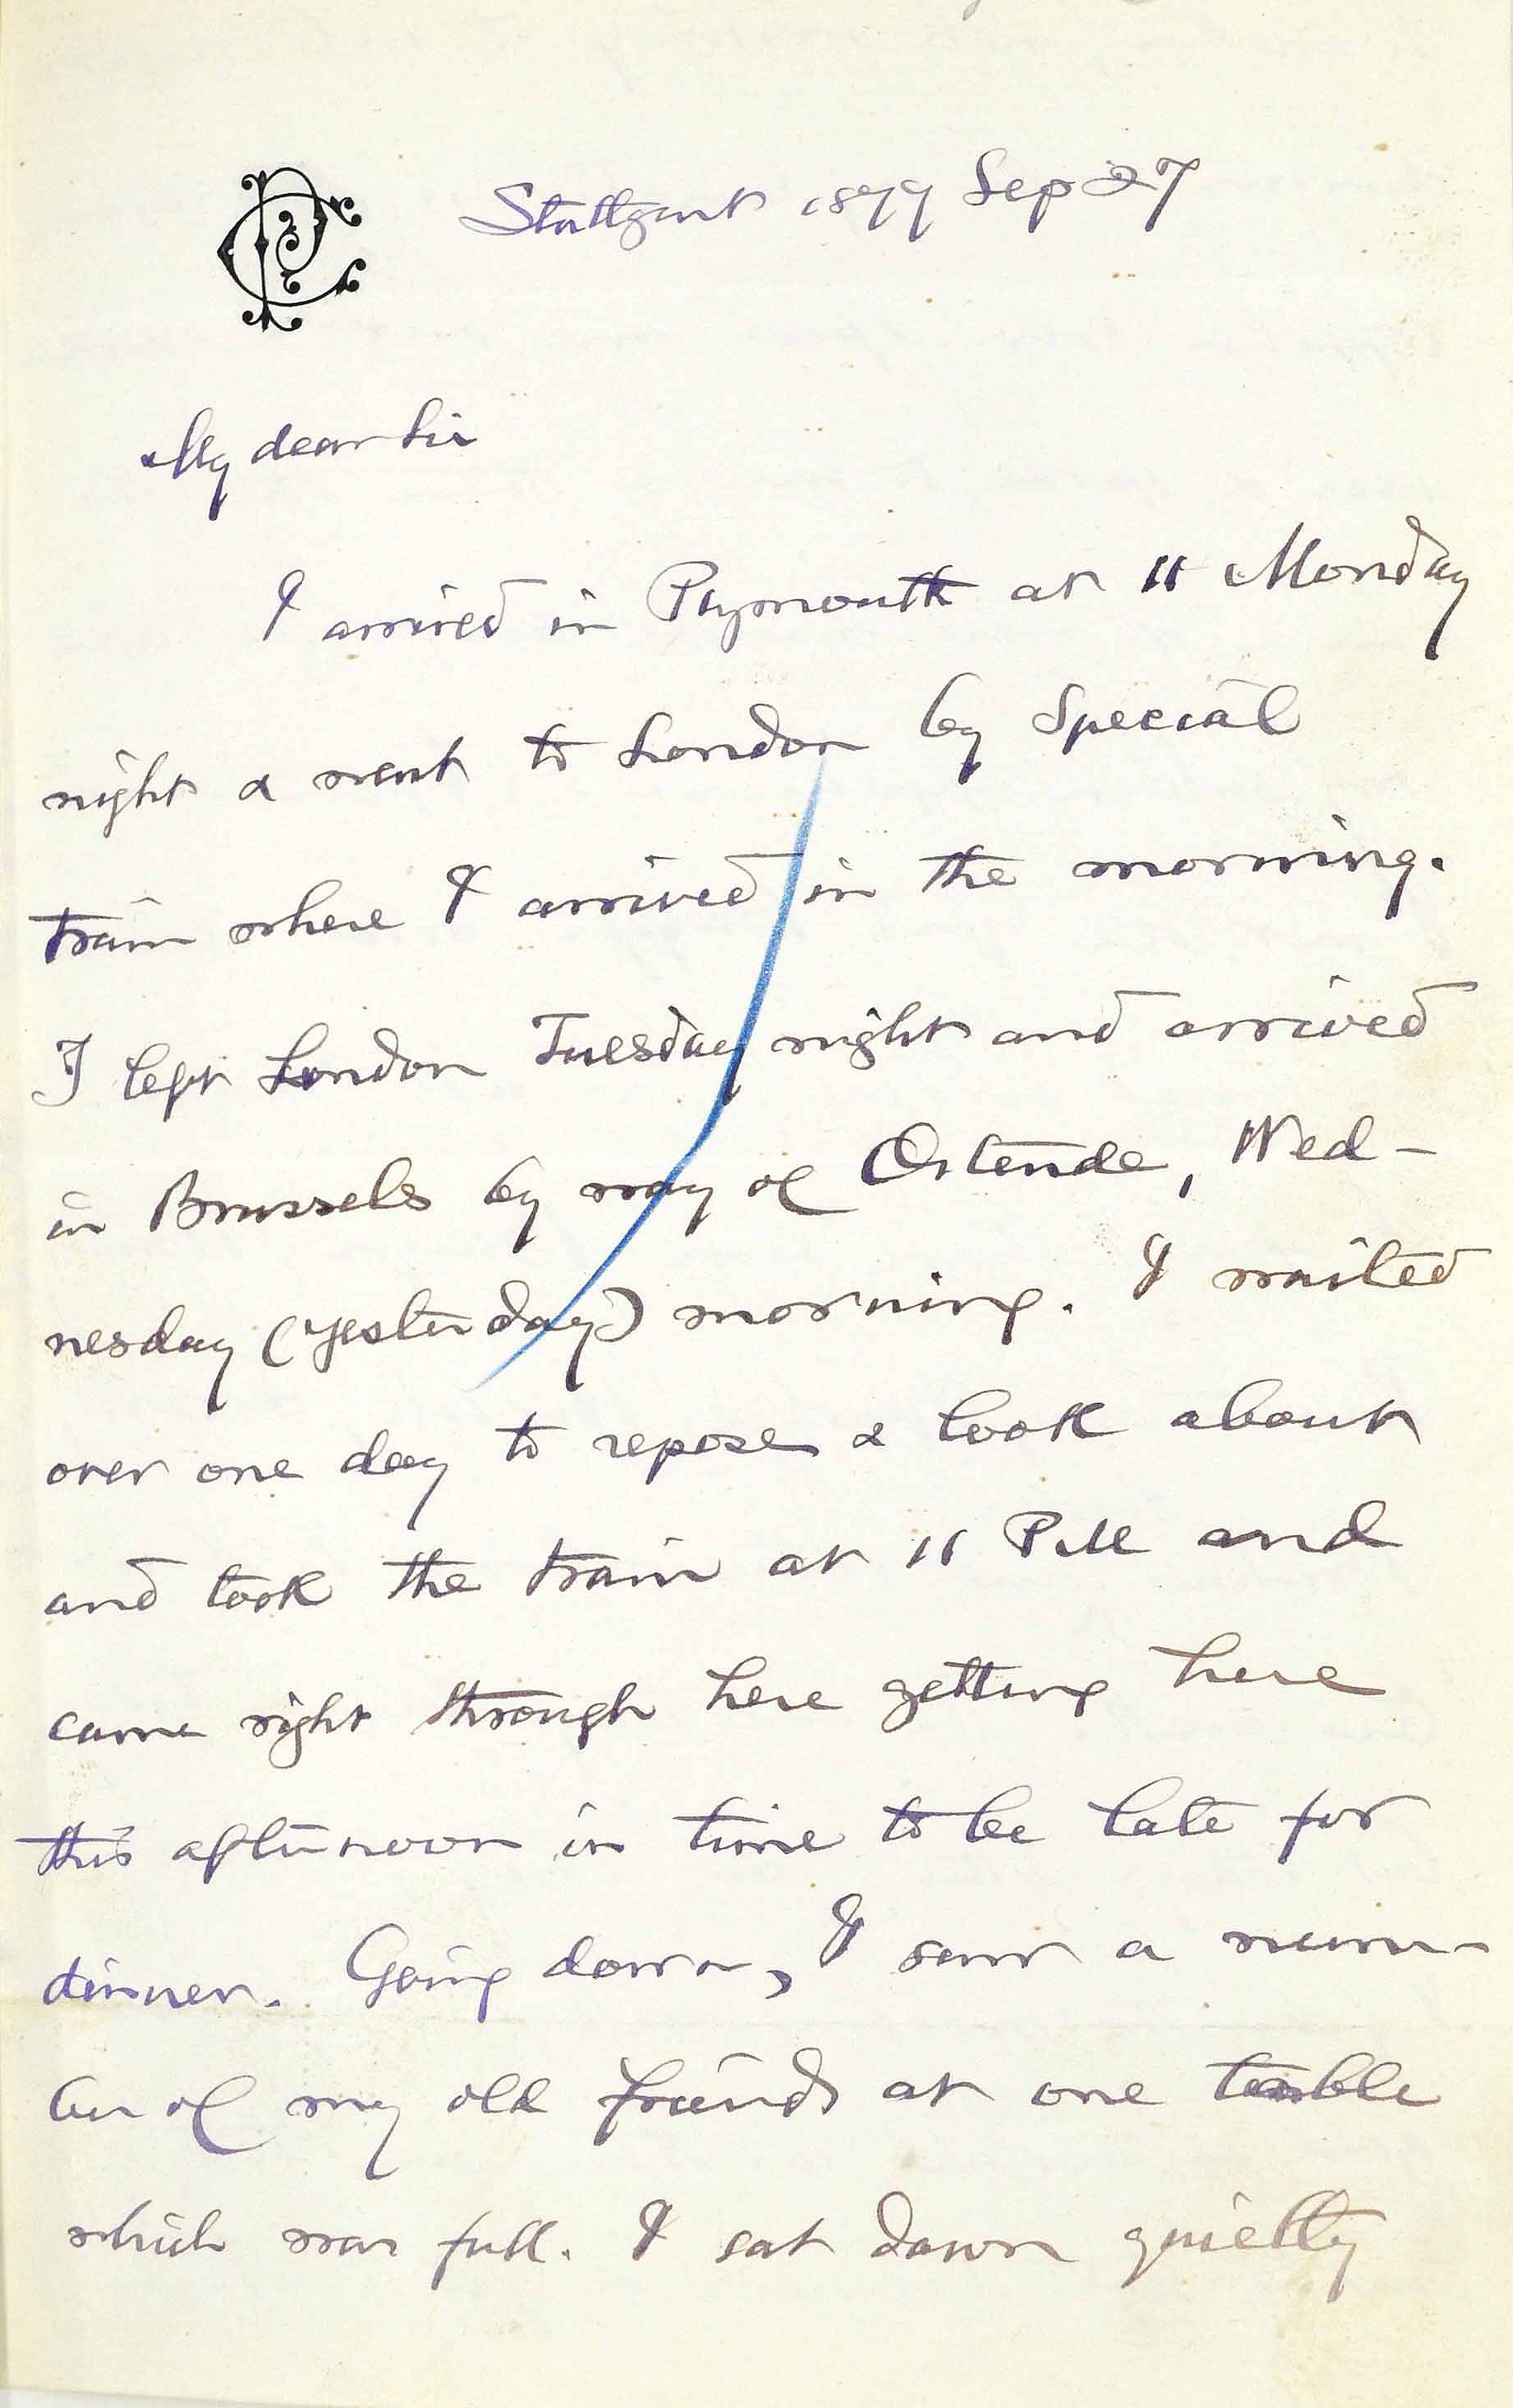 Stuttgart 1877 Sep 27
My dear Sir
I arrived in Plymouth at 11 Monday
night & went to London by Special
train where I arrived in the morning.
I left London Tuesday night and arrived
in Brussels by way of Ostende, Wed-
nesday (yesterday) morning. I waited
over one day to repose & look about
and took the train at 11 PM and
came right through here getting here
this afternoon in time to be late for
dinner. Going down, I saw a num-
ber of my old friends at one table
which was full. I sat down quietly